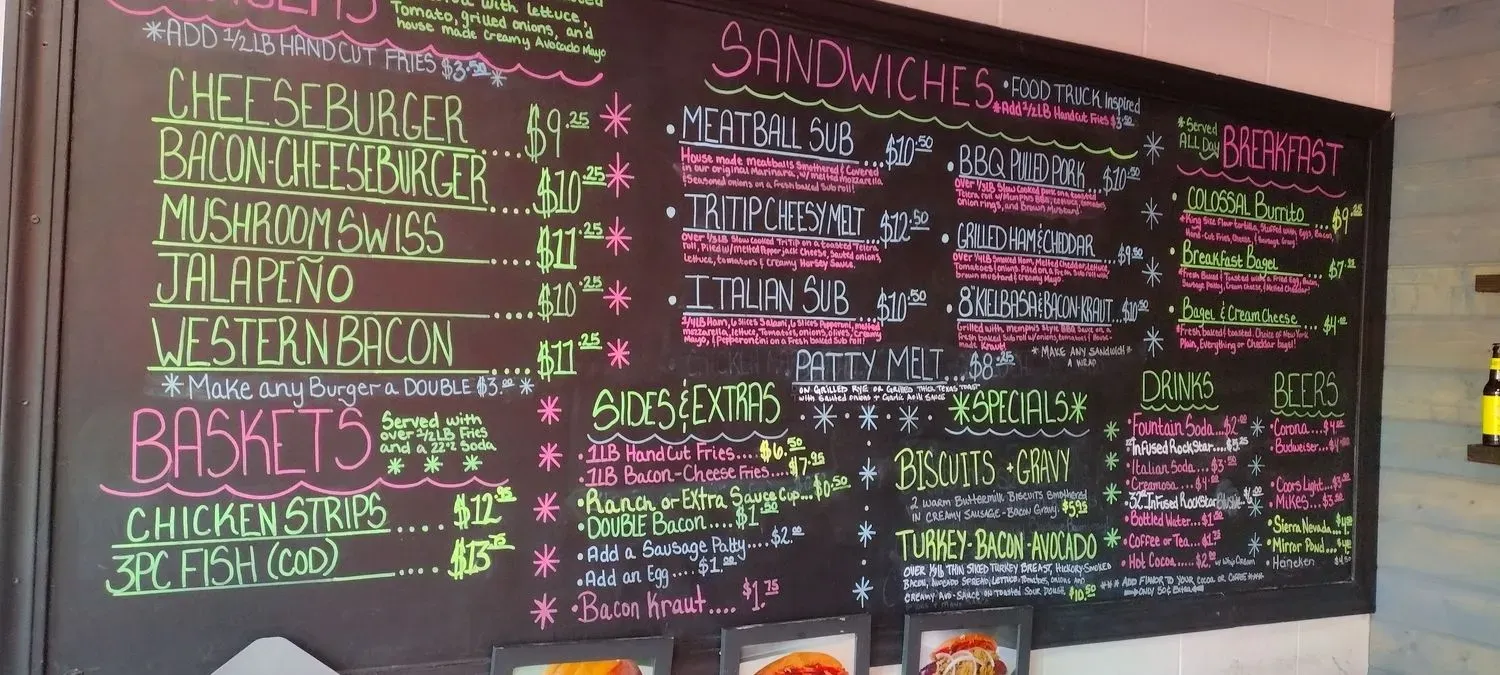 Tomato, grilled onions, and
house made Creamy Avocado Mayo
*ADD 1/2LB HANDCUT FRIES $3.50*
CHEESEBURGER .... $9.25
BACON-CHEESEBURGER .... $10.25
MUSHROOM SWISS .... $11.25
JALAPEÑO .... $10.25
WESTERN BACON .... $11.25
*Make any Burger a DOUBLE $3.00*
BASKETS
Served with
over 1/2LB Fries
and a 22oz Soda
CHICKEN STRIPS .... $12.95
3PC FISH (COD) .... $13.75
SANDWICHES
•FOOD TRUCK Inspired
*Add 1/2LB Handcut Fries $3.50
•MEATBALL SUB ...$10.50
House made meatballs Smothered & Covered
in our original Marinara, w/ melted mozzarella
& Seasoned onions on a fresh baked Sub roll!
•TRITIP CHEESY MELT $12.50
Over 1/3LB Slow Cooked TriTip on a toasted Telera
roll, Piled w/melted Pepper jack Cheese, Sauted onions,
Lettuce, tomatoes & Creamy Horsey Sauce.
•ITALIAN SUB $10.50
1/4LB Ham, 6 slices Salami, 6 Slices Pepperoni, melted
mozzarella, lettuce, Tomatoes, onions, olives, Creamy
Mayo, & Pepperoncini on a Fresh Baked Sub roll!
•BBQ PULLED PORK ...$10.50
Over 1/3LB Slow Cooked pork on a toasted
Telera roll w/Memphis BBQ, Lettuce, tomatoes,
onion rings, and Brown Mustard.
•GRILLED HAM & CHEDDAR ...$9.50
Over 1/4LB Smoked Ham, Melted Cheddar, Lettuce,
Tomatoes & onions. Piled on a Fresh Sub roll with
brown mustard & creamy Mayo.
•8" KIELBASA & BACON-KRAUT...$10.50
Grilled with, memphis Style BBQ Sauce on a
fresh baked Sub roll w/onions, tomatoes, & House
made Kraut!
*MAKE ANY SANDWICH*
A WRAP
PATTY MELT...$8.25
ON GRILLED RYE OR GRILLED THICK TEXAS TOAST
with Sauted onions + Garlic Aoili SAUCE
*Served
ALL Day
BREAKFAST
•COLOSSAL Burrito ...$9.25
*King Size Flour tortilla, Stuffed with, Eggs, Bacon,
Hand-Cut Fries, Cheese, & Sausage Gravy!
Breakfast Bagel ...$7
*Fresh Baked & Toasted with a Fried Egg, Bacon,
Sausage Patty, Cream Cheese, & Melted Cheddar!
Bagel & Cream Cheese ...$4
*Fresh baked & toasted. Choice of New York
Plain, Everything or Cheddar bagel!
SIDES & EXTRAS
•1LB Hand Cut Fries.... $6.50
•1LB Bacon-Cheese Fries....$7.95
•Ranch or EXtra Sauce Cup...$0.50
•DOUBLE Bacon....$1.50
•Add a Sausage Patty....$2.00
•Add an Egg....$1.00
•Bacon Kraut.... $1.75
*SPECIALS*
BISCUITS + GRAVY
2 warm Buttermilk BISCUITS Smothered
IN CREAMY SAUSAGE-BACON Gravy. $5.95
TURKEY-BACON-AVOCADO
OVER 1/3LB THIN SLICED TURKEY BREAST, HICKORY-SMOKED
BACON, AVOCADO SPREAD, LETTUCE, TOMATOES, ONIONS AND
CREAMY AVO-SAUCE ON TOASTED SOUR DOUGH. $10.50
DRINKS
•Fountain Soda...$2.00
Infused RockStar....$5.25
•Italian Soda...$3.50
•Creamosa...$4.00
•32oz Infused RockStar
•Bottled Water...$1.50
•Coffee or Tea...$1.75
•Hot Cocoa......$2.00 w/ Whip Cream
*** ADD FLAVOR TO YOUR COCOA OR COFFEE ***
ONLY 50¢ Extra
BEERS
•Corona....$4
•Budweiser...$4
•Coors Light...$3
•Mikes...$3.50
•Sierra Nevada...
•Mirror Pond...
•Haneken $4.50